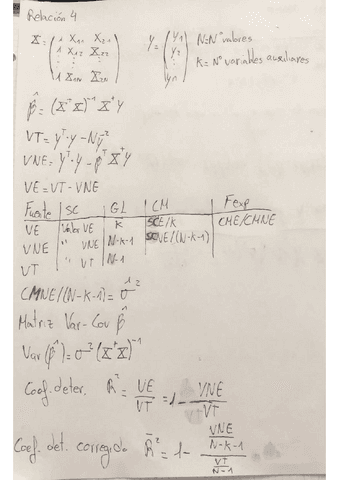 Relación 4
X = ( 1 X₁₁ X₂₁ / 1 X₁₂ X₂₂ / ⋮ ⋮ ⋮ / 1 X₁N X₂N ) Y = ( Y₁ / Y₂ / ⋮ / Y₁ ) N = Nº valores
K = Nº variables auxiliares
β̂ = (XᵗX)⁻¹ XᵗY
VT = Yᵗ·Y - Nȳ²
VNE = Yᵗ·Y - β̂ᵗXᵗY
VE = VT - VNE
Fuente SC GL CM Fexp
VE Valor VE K SCE/K CME/CMNE
VNE " VNE N-K-1 SCNE/(N-K-1)
VT " VT N-1
CMNE/(N-K-1) = σ̂²
Matriz Var-Cov β̂
Var(β̂) = σ²(XᵗX)⁻¹
Coef. deter. R² = VE/VT = 1 - VNE/VT
Coef. det. corregido R̄² = 1 - (VNE/(N-K-1))/(VT/(N-1))